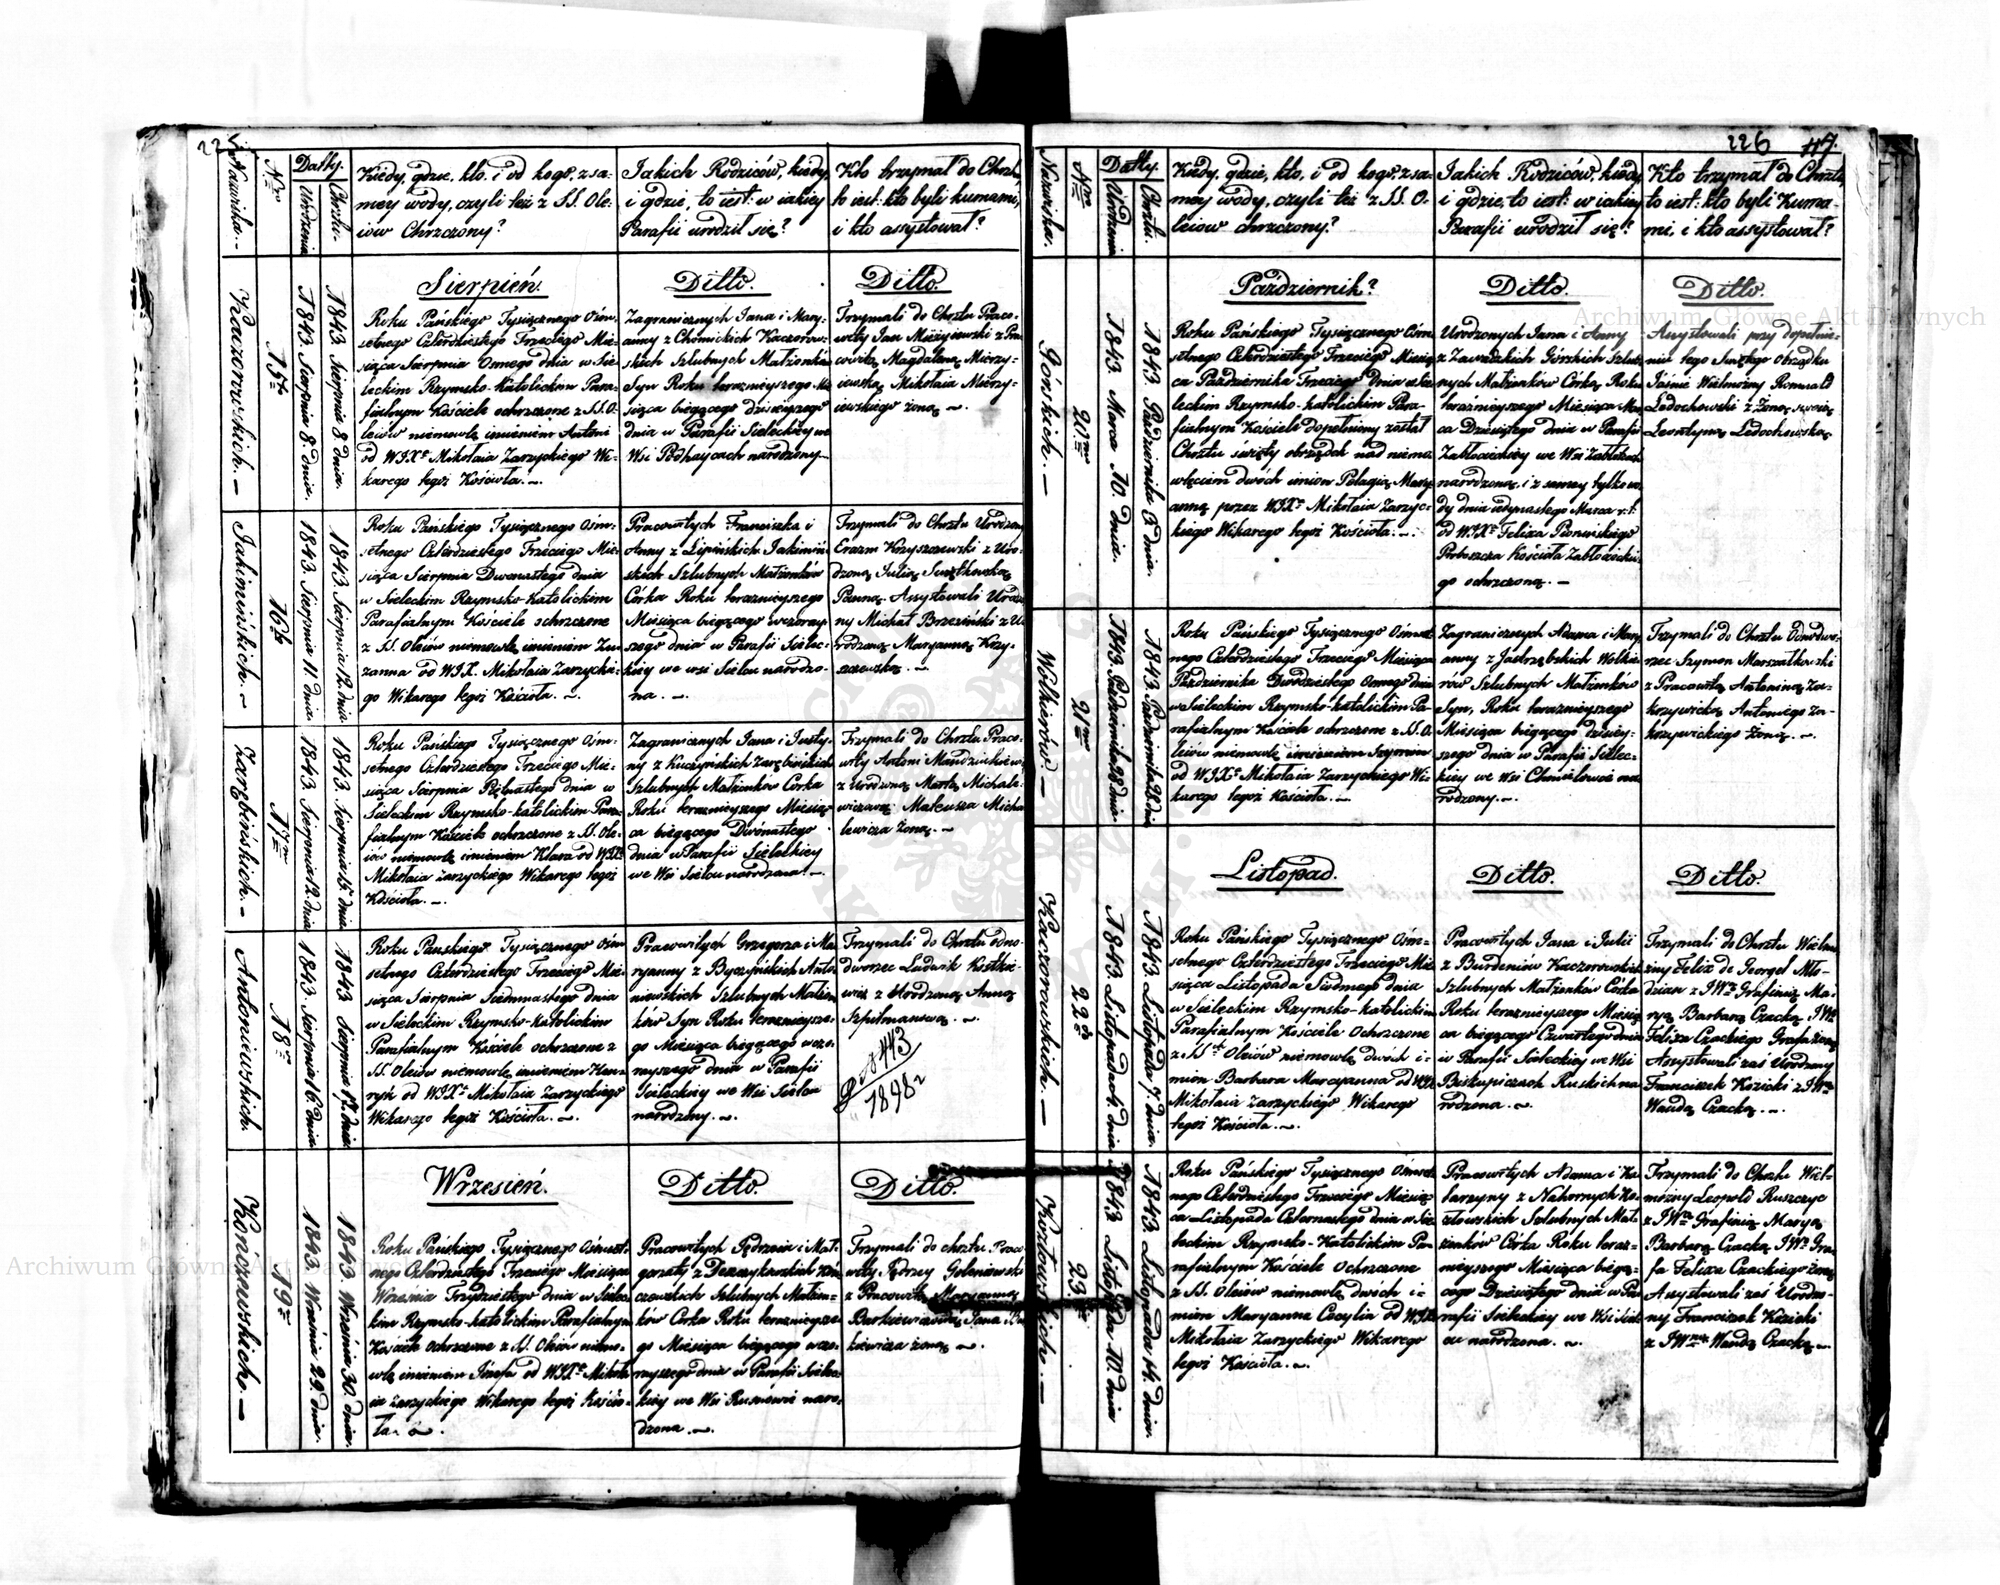 225
Nazwiska.
Nro
Datty.
Urodzenia
Chrztu
Kiedy, gdzie, kto, i od kogo, z sa-
mey wody, czyli też z SS. Ole-
iów Chrzczony?
Jakich Rodziców, kiedy
i gdzie, to iest: w iakiey
Parafii urodził się?
Kto trzymał do Chrztu,
to iest: kto byli kumami,
i kto assystował?
Kaczorowskich. —
15te
1843. Sierpnia 8. dnia.
1843. Sierpnia 8. dnia.
Sierpień.
Roku Pańskiego Tysiącznego Ośm-
setnego Czterdziestego Trzeciego Mie-
siąca Sierpnia Osmego dnia w Sie-
leckim Rzymsko-Katolickim Para-
fialnym Kościele ochrzczone z SS. O-
leiów niemowlę imieniem Antoni
od WJXa Mikołaia Zarzyckiego Wi-
karego tegoż Kościoła. —.
Ditto.
Zagranicznych Jana i Mary-
anny z Chömickich Kaczorow-
skich Szlubnych Małżonków
Syn Roku terazneyszego Mie-
siąca biegącego dzisieyszego
dnia w Parafii Sieleckiey we
Wsi Podhaycach narodzony
Ditto.
Trzymali do Chrztu Praco-
wity Jan Mierzyiewski z Pra-
cowitą Magdaleną Mierzy-
iewską, Mikołaia Mierzy-
iewskiego żoną —.
Jakimińskich. —
16te
1843. Sierpnia 11. dnia.
1843. Sierpnia 12. dnia.
Roku Pańskiego Tysiącznego Ośm-
setnego Czterdziestego Trzeciego Mie-
siąca Sierpnia Dwunastego dnia
w Sieleckim Rzymsko-Katolickim
Parafialnym Kościele ochrzczone
z SS. Oleiów niemowlę imieniem Zu-
zanna od WJX. Mikołaia Zarzyckie-
go Wikarego tegoż Kościoła. —.
Pracowitych Franciszka i
Anny z Lipińskich Jakimiń-
skich Szlubnych Małżonków
Córka Roku terazneyszego
Miesiąca biegącego wczoray-
szego dnia w Parafii Sielec-
kiey we wsi Sielcu narodzo-
na. —.
Trzymali do Chrztu Urodzony
Erazm Krzyszewski z Uro-
dzoną Julią Swiętkowską
Panną. Assystowali Urodzo-
ny Michał Brzeziński z U-
rodzoną Maryanną Krzy-
szewską. —.
Zarębińskich. —
17me
1843. Sierpnia 12. dnia
1843. Sierpnia 15. dnia.
Roku Pańskiego Tysiącznego Ośm-
setnego Czterdziestego Trzeciego Mie-
siąca Sierpnia Piętnastego dnia w
Sieleckim Rzymsko-katolickim Para-
fialnym Kościele ochrzczone z SS. Ole-
iów niemowlę imieniem Klara od WJXa
Mikołaia Zarzyckiego Wikarego tegoż
Kościoła. —.
Zagranicznych Jana i Justy-
ny z Kuczyńskich Zarębińskich
Szlubnych Małżonków Córka
Roku terazneyszego Miesią-
ca biegącego Dwónastego
dnia w Parafii Sieleckiey
we Wsi Sielcu narodzona. —.
Trzymali do Chrztu Praco-
wity Antoni
z Urodzoną Martą Michale-
wiczową Mateusza Micha-
lewicza żoną. —
Antoniewskich.
18te
1843. Sierpnia 16. dnia
1843 Sierpnia 17. dnia.
Roku Pańskiego Tysiącznego Ośm-
setnego Czterdziestego Trzeciego Mie-
siąca Sierpnia Siedmnastego dnia
w Sieleckim Rzymsko-Katolickim
Parafialnym Kościele ochrzczone z
SS. Oleiów niemowlę imieniem Hen-
ryk od WJXa Mikołaia Zarzyckiego
Wikarego tegoż Kościoła. —.
Pracowitych Grzegorza i Ma-
ryanny z Byczyńskich Anto-
niewskich Szlubnych Małżon-
ków Syn Roku terazneysze-
go Miesiąca biegącego wczo-
rayszego dnia w Parafii
Sieleckiey we Wsi Sielcu
narodzony. —.
Trzymali do Chrztu odno-
dworzec Ludwik Kostkie-
wicz z Urodzoną Anną
Szpilmanową. —.
443
1898 r
Kończewskich. —
19te
1843. Września 29. dnia.
1843 Września 30. dnia.
Wrzesień.
Roku Pańskiego Tysiącznego Ośmset-
nego Czterdziestego Trzeciego Miesiąca
Września Trzydziestego dnia w Sielec-
kim Rzymsko-katolickim Parafialnym
Kościele ochrzczone z SS. Oleiów niemo-
wlę imieniem Józefa od WJXa Mikoła-
ia Zarzyckiego Wikarego tegoż Kościo-
ła. —.
Ditto.
Pracowitych Jędrzeia i Mał-
gorzaty z Koń-
czewskich Szlubnych Małżon-
ków Córka Roku terazneysze-
go Miesiąca biegącego wczo-
rayszego dnia w Parafii Sielec-
kiey we Wsi Rusnowie naro-
dzona. —.
Ditto.
Trzymali do chrztu Praco-
wity Jędrzey Goleniowski
z Pracowitą Maryanną
Bartkiewiczową Jana Bart-
kiewicza żoną. —.
226 117.
Nazwiska.
Nro
Datty.
Urodzenia
Chrztu.
Kiedy, gdzie, kto, i od kogo, z sa-
mey wody, czyli też z SS. O-
leiow chrzczony?
Jakich Rodziców, kiedy
i gdzie, to iest: w iakiey
Parafii urodził się?
Kto trzymał do Chrztu,
to iest: kto byli Kuma-
mi, i kto assystował?
Górskich. —
20me
1843. Marca 10. dnia.
1843. Października 3. dnia.
Październik?
Roku Pańskiego Tysiącznego Ośm-
setnego Czterdziestego Trzeciego Miesią-
ca Października Trzeciego dnia w Sie-
leckim Rzymsko-katolickim Para-
fialnym Kościele dopełniony został
Chrztu święty obrządek nad niemo-
wlęciem dwóch imion Pelagią Mary-
anną przez WJXa Mikołaia Zarzyc-
kiego Wikarego tegoż Kościoła. —.
Ditto.
Urodzonych Jana i Anny
z Zawadzkich Górskich Szlub-
nych Małżonków Córką, Roku
terazneyszego Miesiąca Mar-
ca Dziesiątego dnia w Parafii
Zabłocieckiey we Wsi Zabłotcach
narodzoną, i z samey tylko wo-
dy dnia iedynastego Marca r. t.
od WJXa Felixa Pionińskiego
Proboszcza Kościoła Zabłocieckie-
go ochrzczoną. —
Ditto.
Assystowali przy dopełnie-
niu tego Swiętego Obrządku
Jaśnie Wielmożny Romuald
Ledochowski z Żoną swoią
Leontyną Ledochowską
Wolkierów —
21me
1843. Października 28. dnia.
1843. Października 28. dnia
Roku Pańskiego Tysiącznego Ośmset-
nego Czterdziestego Trzeciego Miesiąca
Października Dwodziestego Osmego dnia
w Sieleckim Rzymsko-katolickim Pa-
rafialnym Kościele ochrzczone z SS. O-
leiów niemowlę imieniem Szymon
od WJXa Mikołaia Zarzyckiego Wi-
karego tegoż Kościoła. —.
Zagranicznych Adama i Mary-
anny z Jastrzębskich Wolkie-
rów Szlubnych Małżonków
Syn, Roku terazneyszego
Miesiąca biegącego dzisiey-
szego dnia w Parafii Sielec-
kiey we Wsi Chmielowce na-
rodzony. —.
Trzymali do Chrztu Odnodwo-
rzec Szymon Marszałkowski
z Pracowitą Antoniną Za-
krzywicką Antoniego Za-
krzywickiego żoną. —.
Kaczorowskich. —
22te
1843. Listopada 4. dnia
1843. Listopada 7. dnia.
Listopad.
Roku Pańskiego Tysiącznego Ośm-
setnego Czterdziestego Trzeciego Mie-
siąca Listopada Siodmego dnia
w Sieleckim Rzymsko-katolickim
Parafialnym Kościele Ochrzczone
z SS. Oleiów niemowlę dwóch i-
mion Barbara Maryanna od WJX
Mikołaia Zarzyckiego Wikarego
tegoż Kościoła. —.
Ditto.
Pracowitych Jana i Julii
z Burdeniów Kaczorowskich
Szlubnych Małżonków Córka
Roku terazneyszego Miesią-
ca biegącego Czwartego dnia
w Parafii Sieleckiey we Wsi
Biskupiczach Ruskich na-
rodzona. —.
Ditto.
Trzymali do Chrztu Wielmo-
żny Felix de Georgel Mło-
dzian z JWną Grafinią Ma-
ryą Barbarą Czacką JWgo
Felixa Czackiego Grafa żoną
Assystowali zaś Urodzony
Franciszek Kozicki z JWną
Wandą Czacką. —.
Kozłowskich. —
23cie
1843 Listopada 10. dnia
1843. Listopada 14. dnia.
Roku Pańskiego Tysiącznego Ośmset-
nego Czterdziestego Trzeciego Miesią-
ca Listopada Czternastego dnia w Sie-
leckim Rzymsko-Katolickim Pa-
rafialnym Kościele Ochrzczone
z SS. Oleiów niemowlę dwóch i-
mion Maryanna Cecylia od WJX
Mikołaia Zarzyckiego Wikarego
tegoż Kościoła. —.
Pracowitych Adama i Ka-
tarzyny z Nahornych Ko-
złowskich Szlubnych Mał-
żonków Córka Roku teraz-
neyszego Miesiąca biegą-
cego Dziesiątego dnia w Pa-
rafii Sieleckiey we Wsi Siel-
cu narodzona. —.
Trzymali do Chrztu Wiel-
możny Leopold Ruszczyc
z JWną Grafinią Maryą
Barbarą Czacką JWgo Gra-
fa Felixa Czackiego żoną
Assystowali zaś Urodzo-
ny Franciszek Kozicki
z JWną Wandą Czacką. —.
Archiwum Główne Akt Dawnych
Archiwum Główne Akt Dawnych